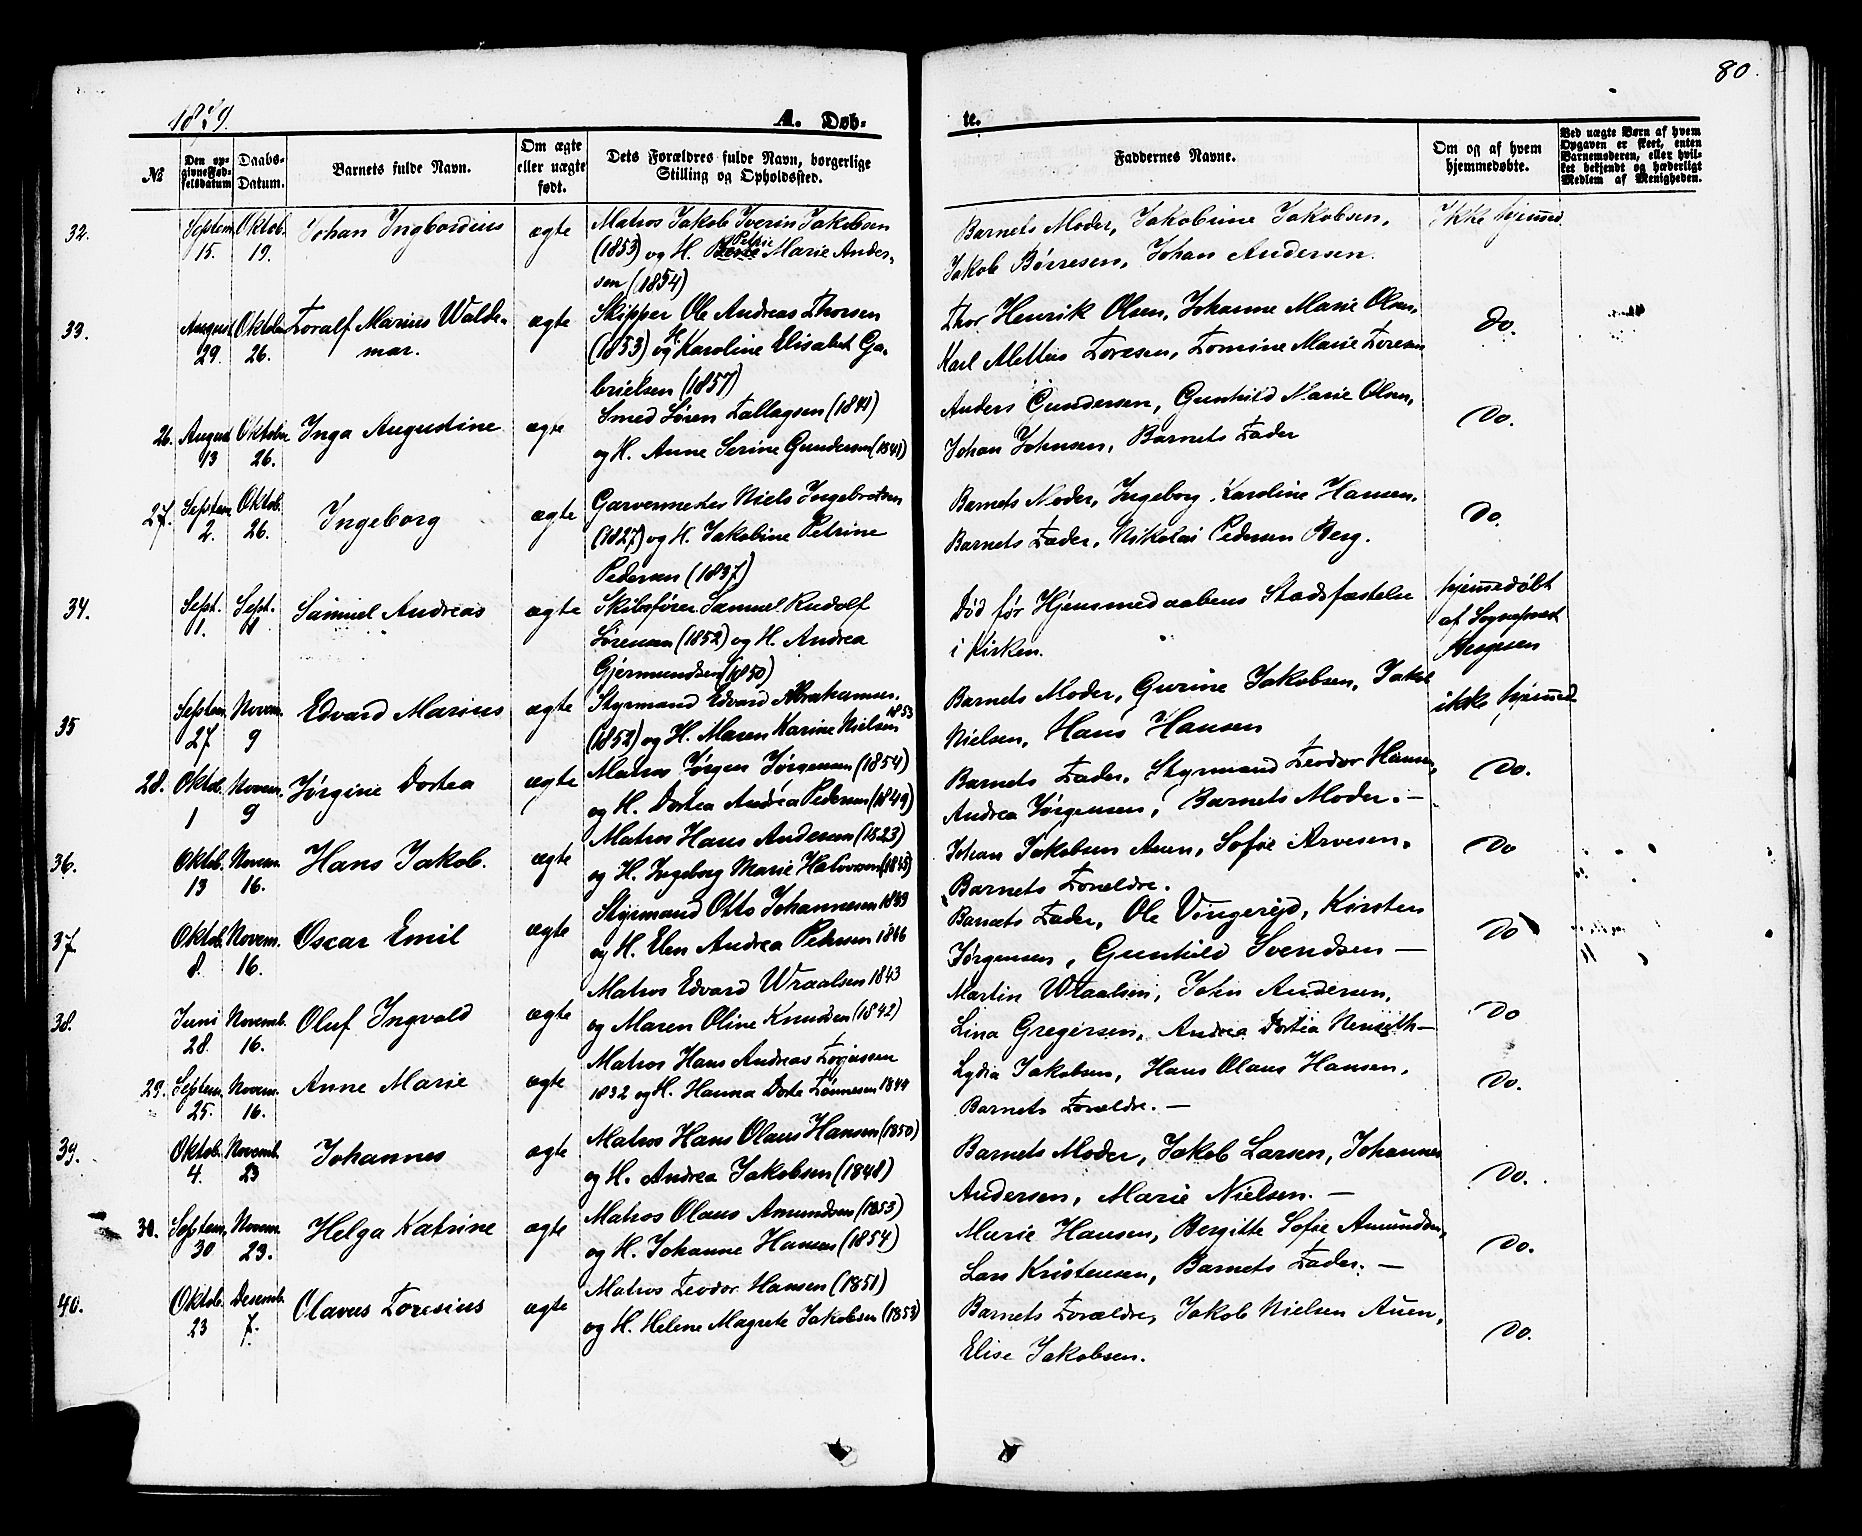 80.
1879.
A. Døb-
te.
№
Den op-
givne Fød-
selsdatum
Daabs-
Datum.
Barnets fulde Navn.
Om ægte
eller uægte
født.
Dets Forældres fulde Navn, borgerlige
Stilling og Opholdssted.
Faddernes Navne.
Om og af hvem
hjemmedøbte.
Ved uægte Børn af hvem
Opgaven er skeet, enten
Barnemoderen, eller hvil-
ket bekjendt og hæderligt
Medlem af Menigheden.
32.
Septem.
15.
Oktob.
19.
Johan Ingbordius
ægte
Matros Jakob Iverin Jakobsen
(1853) og H. Petrie Marie Ander-
sen (1854)
Barnets Moder, Jakobine Jakobsen,
Jakob Børresen, Johan Andersen.
Ikke hjemmed.
33.
August
29.
Oktober
26.
Toralf Marius Walde-
mar.
ægte
Skipper Ole Andreas Thorsen
(1853) og H. Karoline Elisabet Ga-
brielsen (1857)
Thor Henrik Olsen, Johanne Marie Olsen,
Karl Mettius Toresen, Tomine Marie Toresen
Do.
26.
August
13
Oktober
26.
Inga Augustine
ægte
Smed Søren Tallagsen (1841)
og H. Anne Serine Gundersen (1841)
Anders Gundersen, Gunhild Marie Olsen,
Johan Johnsen, Barnets Fader
Do.
27.
Septem
2.
Oktob.
26.
Ingeborg
ægte
Garvermester Niels Ingebretsen
(1827) og H. Jakobine Petrine
Pedersen (1837)
Barnets Moder, Ingeborg Karoline Hansen,
Barnets Fader, Nikolai Pedersen Berg.
Do.
34.
Sept.
1.
Sept.
11
Samuel Andreas
ægte
Skibsfører Samuel Rudolf
Sørensen (1852) og H. Andrea
Gjermundsen (1850)
Død før Hjemmedaabens Stadfæstelse
i Kirken.
hjemmedøbt
af Sognepræst
35
Septem.
27
Novem.
9
Edvard Marius
ægte
Styrmand Edvard Abrahamsen
(1852) og H. Maren Karine Nielsen 1853
Barnets Moder, Gurine Jakobsen, Jakob
Nielsen, Hans Hansen
ikke hjemmed
28.
Oktob.
1
Novem.
9
Jørgine Dortea
ægte
Matros Jørgen Jørgensen (1854)
og H. Dortea Andrea Pedersen (1849)
Barnets Fader, Styrmand Teodor Hansen,
Andrea Jørgensen, Barnets Moder. —
Do.
36.
Oktob.
13
Novem.
16.
Hans Jakob.
ægte
Matros Hans Andersen (1823)
og H. Ingeborg Marie Halvorsen (1845)
Johan Jakobsen Auen, Sofie Arvesen,
Barnets Forældre.
Do
37.
Oktob.
8.
Novem.
16.
Oscar Emil
ægte
Styrmand Otto Johannesen 1849
og H. Elen Andrea Pedersen 1846
Barnets Fader, Ole Vingereid, Kirsten
Jørgensen, Gunhild Svendsen —
Do
38.
Juni
28.
Novemb.
16.
Oluf Ingvald
ægte
Matros Edvard Wraalsen 1843
og Maren Oline Knudsen (1842)
Martin Wraalsen, John Andersen,
Lina Gregersen, Andrea Dortea —
Do
29.
Septem.
25.
Novem.
16.
Anne Marie
ægte
Matros Hans Andreas Terjesen
1832 og H. Hanna Dorte Tønnesen 1844
Lydia Jakobsen, Hans Olaus Hansen,
Barnets Forældre. —
Do.
39.
Oktob.
4.
Novemb.
23
Johannes
ægte
Matros Hans Olaus Hansen (1850)
og H. Andrea Jakobsen (1848)
Barnets Moder, Jakob Larsen, Johannes
Andersen, Marie Nielsen. —
Do.
30.
Septem.
30
Novem.
23.
Helga Katrine
ægte
Matros Olaus Amundsen (1853)
og H. Johanne Hansen (1854)
Marie Hansen, Bergitte Sofie Amundsen,
Lars Kristensen, Barnets Fader. —
Do.
40.
Oktob.
23
Desemb.
7.
Olavus Toresius
ægte
Matros Teodor Hansen (1851)
og H. Helene Magrete Jakobsen (1853)
Barnets Forældre, Jakob Nielsen Auen,
Elise Jakobsen.
Do.